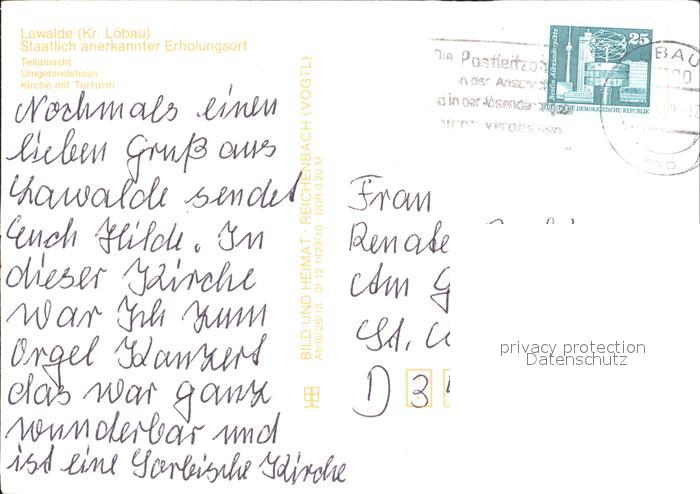 Lawalde (Kr. Löbau)
Staatlich anerkannter Erholungsort
Teilansicht
Umgebindehaus
Kirche mit Torturm
Nochmals einen
lieben Gruß aus
Lawalde sendet
Euch Hilde. In
dieser Kirche
war Ich zum
Orgel Kanzert
das war ganz
wunderbar und
ist eine Sorbische Kirche
BILD UND HEIMAT · REICHENBACH (VOGTL)
A1/III/26/13 01 12 1423/10 · DDR 0,20 M
Die Postleitza
in der Anschrift
d in der Absender
nicht vergessen
25
Berlin, Alexanderplatz
DEMOKRATISCHE REPUBLIK
BAU
Frau
Renate
Am G
St.
D 3
privacy protection
Datenschutz